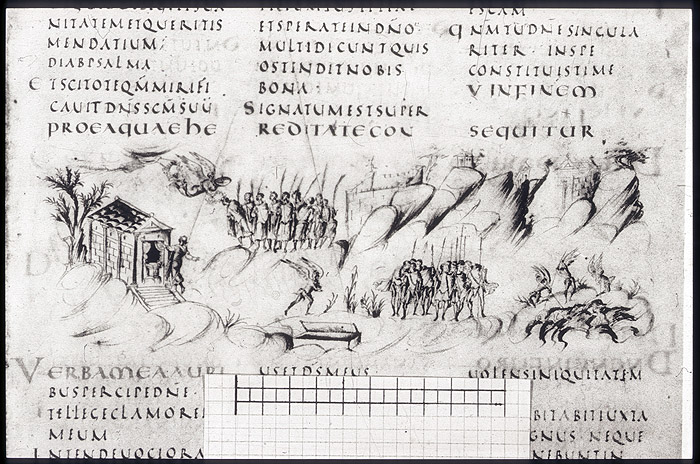 NITATEMETQUERITIS
MENDATIUM
DIABPSALMA
ETSCITOTEQMMIRIFI
CAUITDNSSCMSUU
PROEAQUAEHE
ETSPERATEINDNO
MULTIDICUNTQUIS
OSTINDITNOBIS
BONA
SIGNATUMESTSUPER
REDITATECON
ESCAM
QNMTUDNESINGULA
RITER INSPE
CONSTITUISTIME
V INFINEM
SEQUITUR
VERBAMEAAURI
BUSPERCIPEDNE
TELLEGECLAMORE
MEUM
INTENDEUOCIORA
USETDSMEUS
UOLENSINIQUITATEM
BITABITIUXTA
GNUS NEQUE
NEBUNTIN